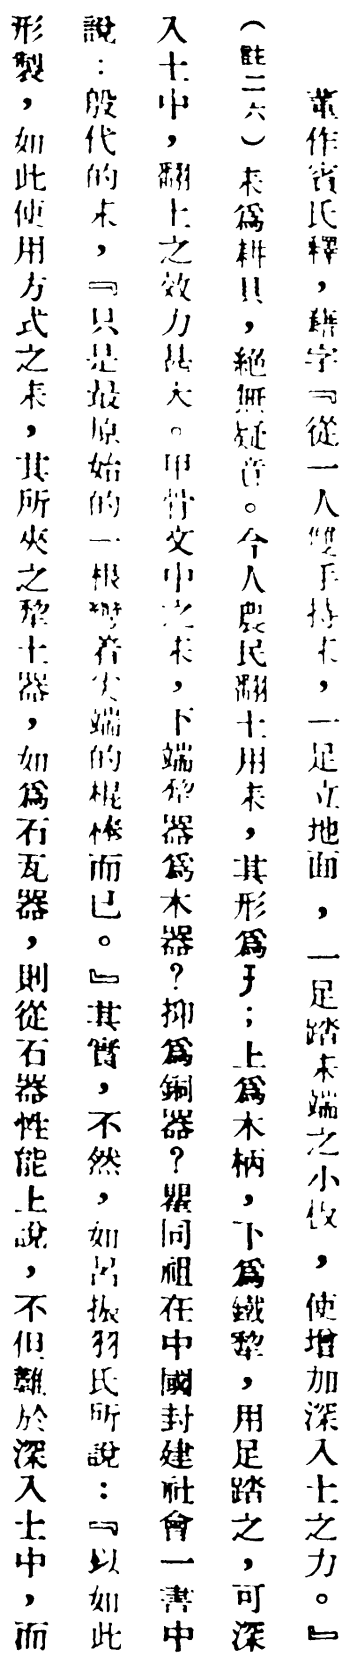 董作賓氏釋，耤字『從一人雙手持耒，一足立地面，一足踏耒端之小枚，使增加深入土之力。』
（註二六）耒爲耕具，絕無疑音。今人農民翻土用耒，其形爲；上爲木柄，下爲鐵犂，用足踏之，可深
入土中，翻土之效力甚大。甲骨文中之耒，下端犂器爲木器？抑爲銅器？瞿同祖在中國封建社會一書中
說：殷代的耒，『只是最原始的一根彎着尖端的棍棒而已。』其實，不然，如呂振羽氏所說：『以如此
形製，如此使用方式之耒，其所夾之犂土器，如爲石瓦器，則從石器性能上說，不但難於深入土中，而